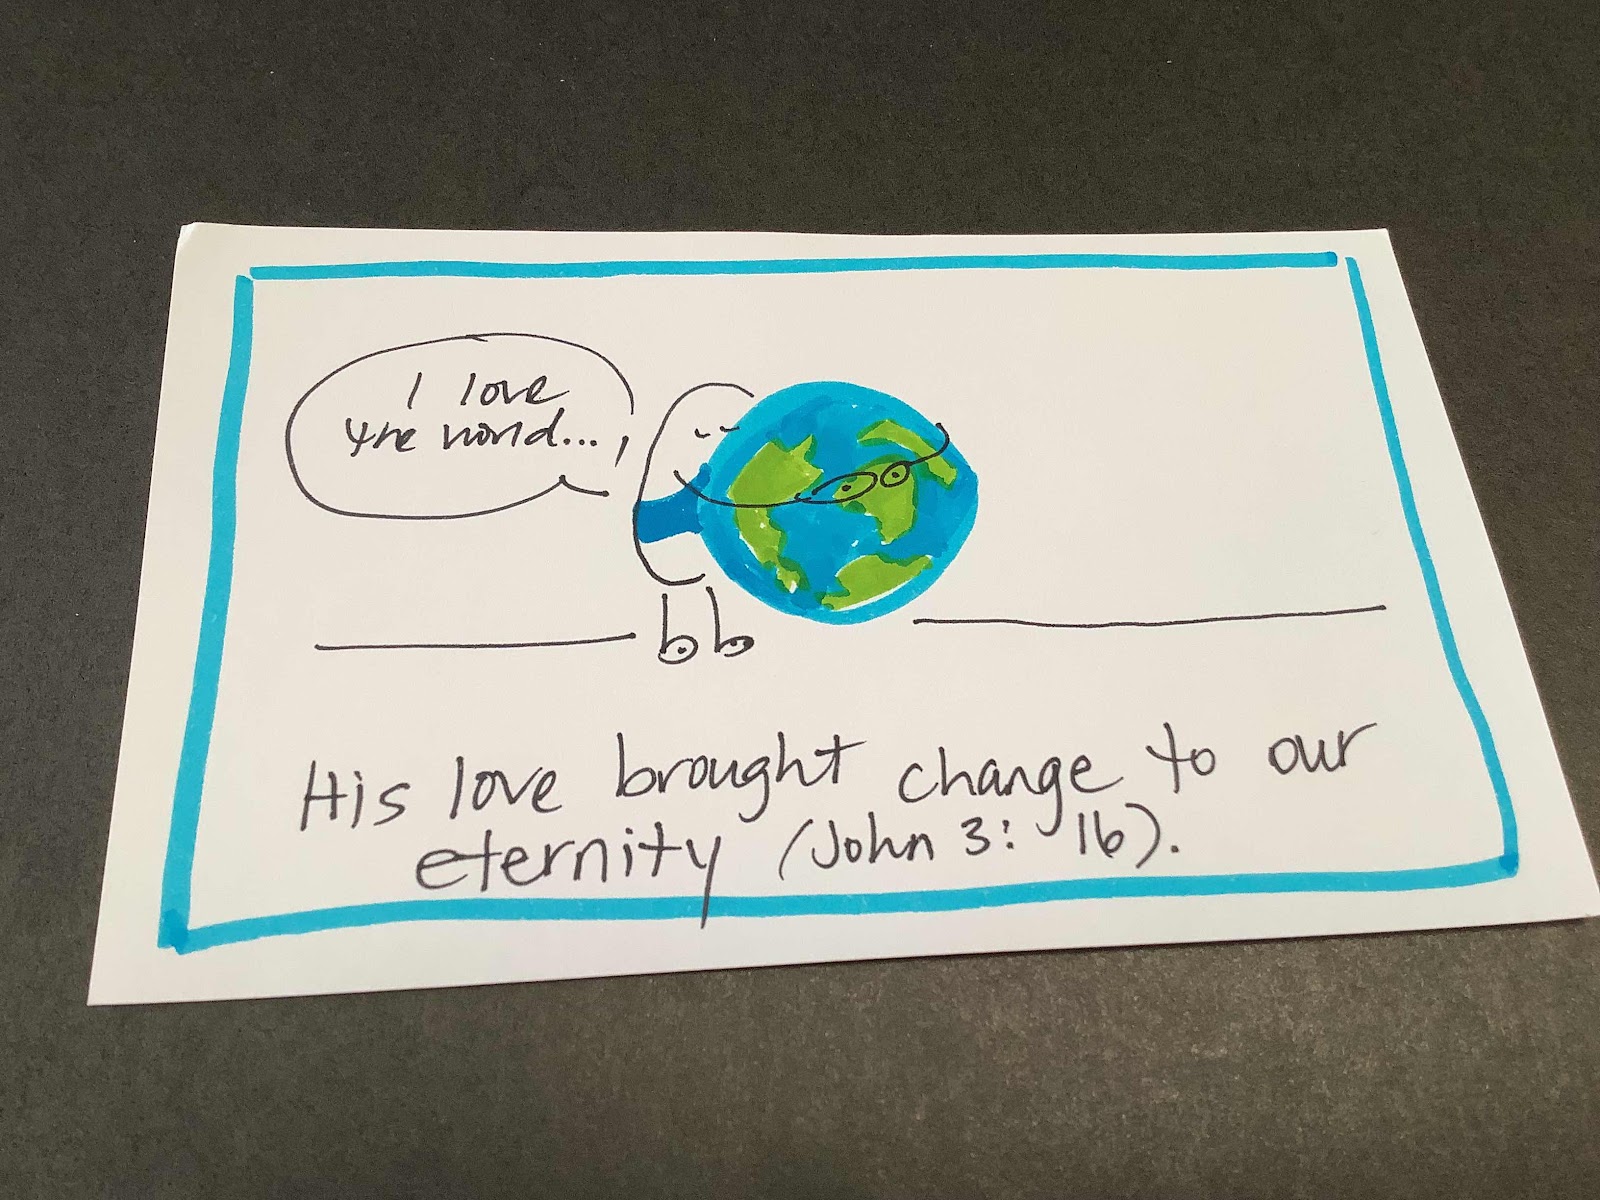 I love
the world...
His love brought change to our
eternity (John 3: 16).